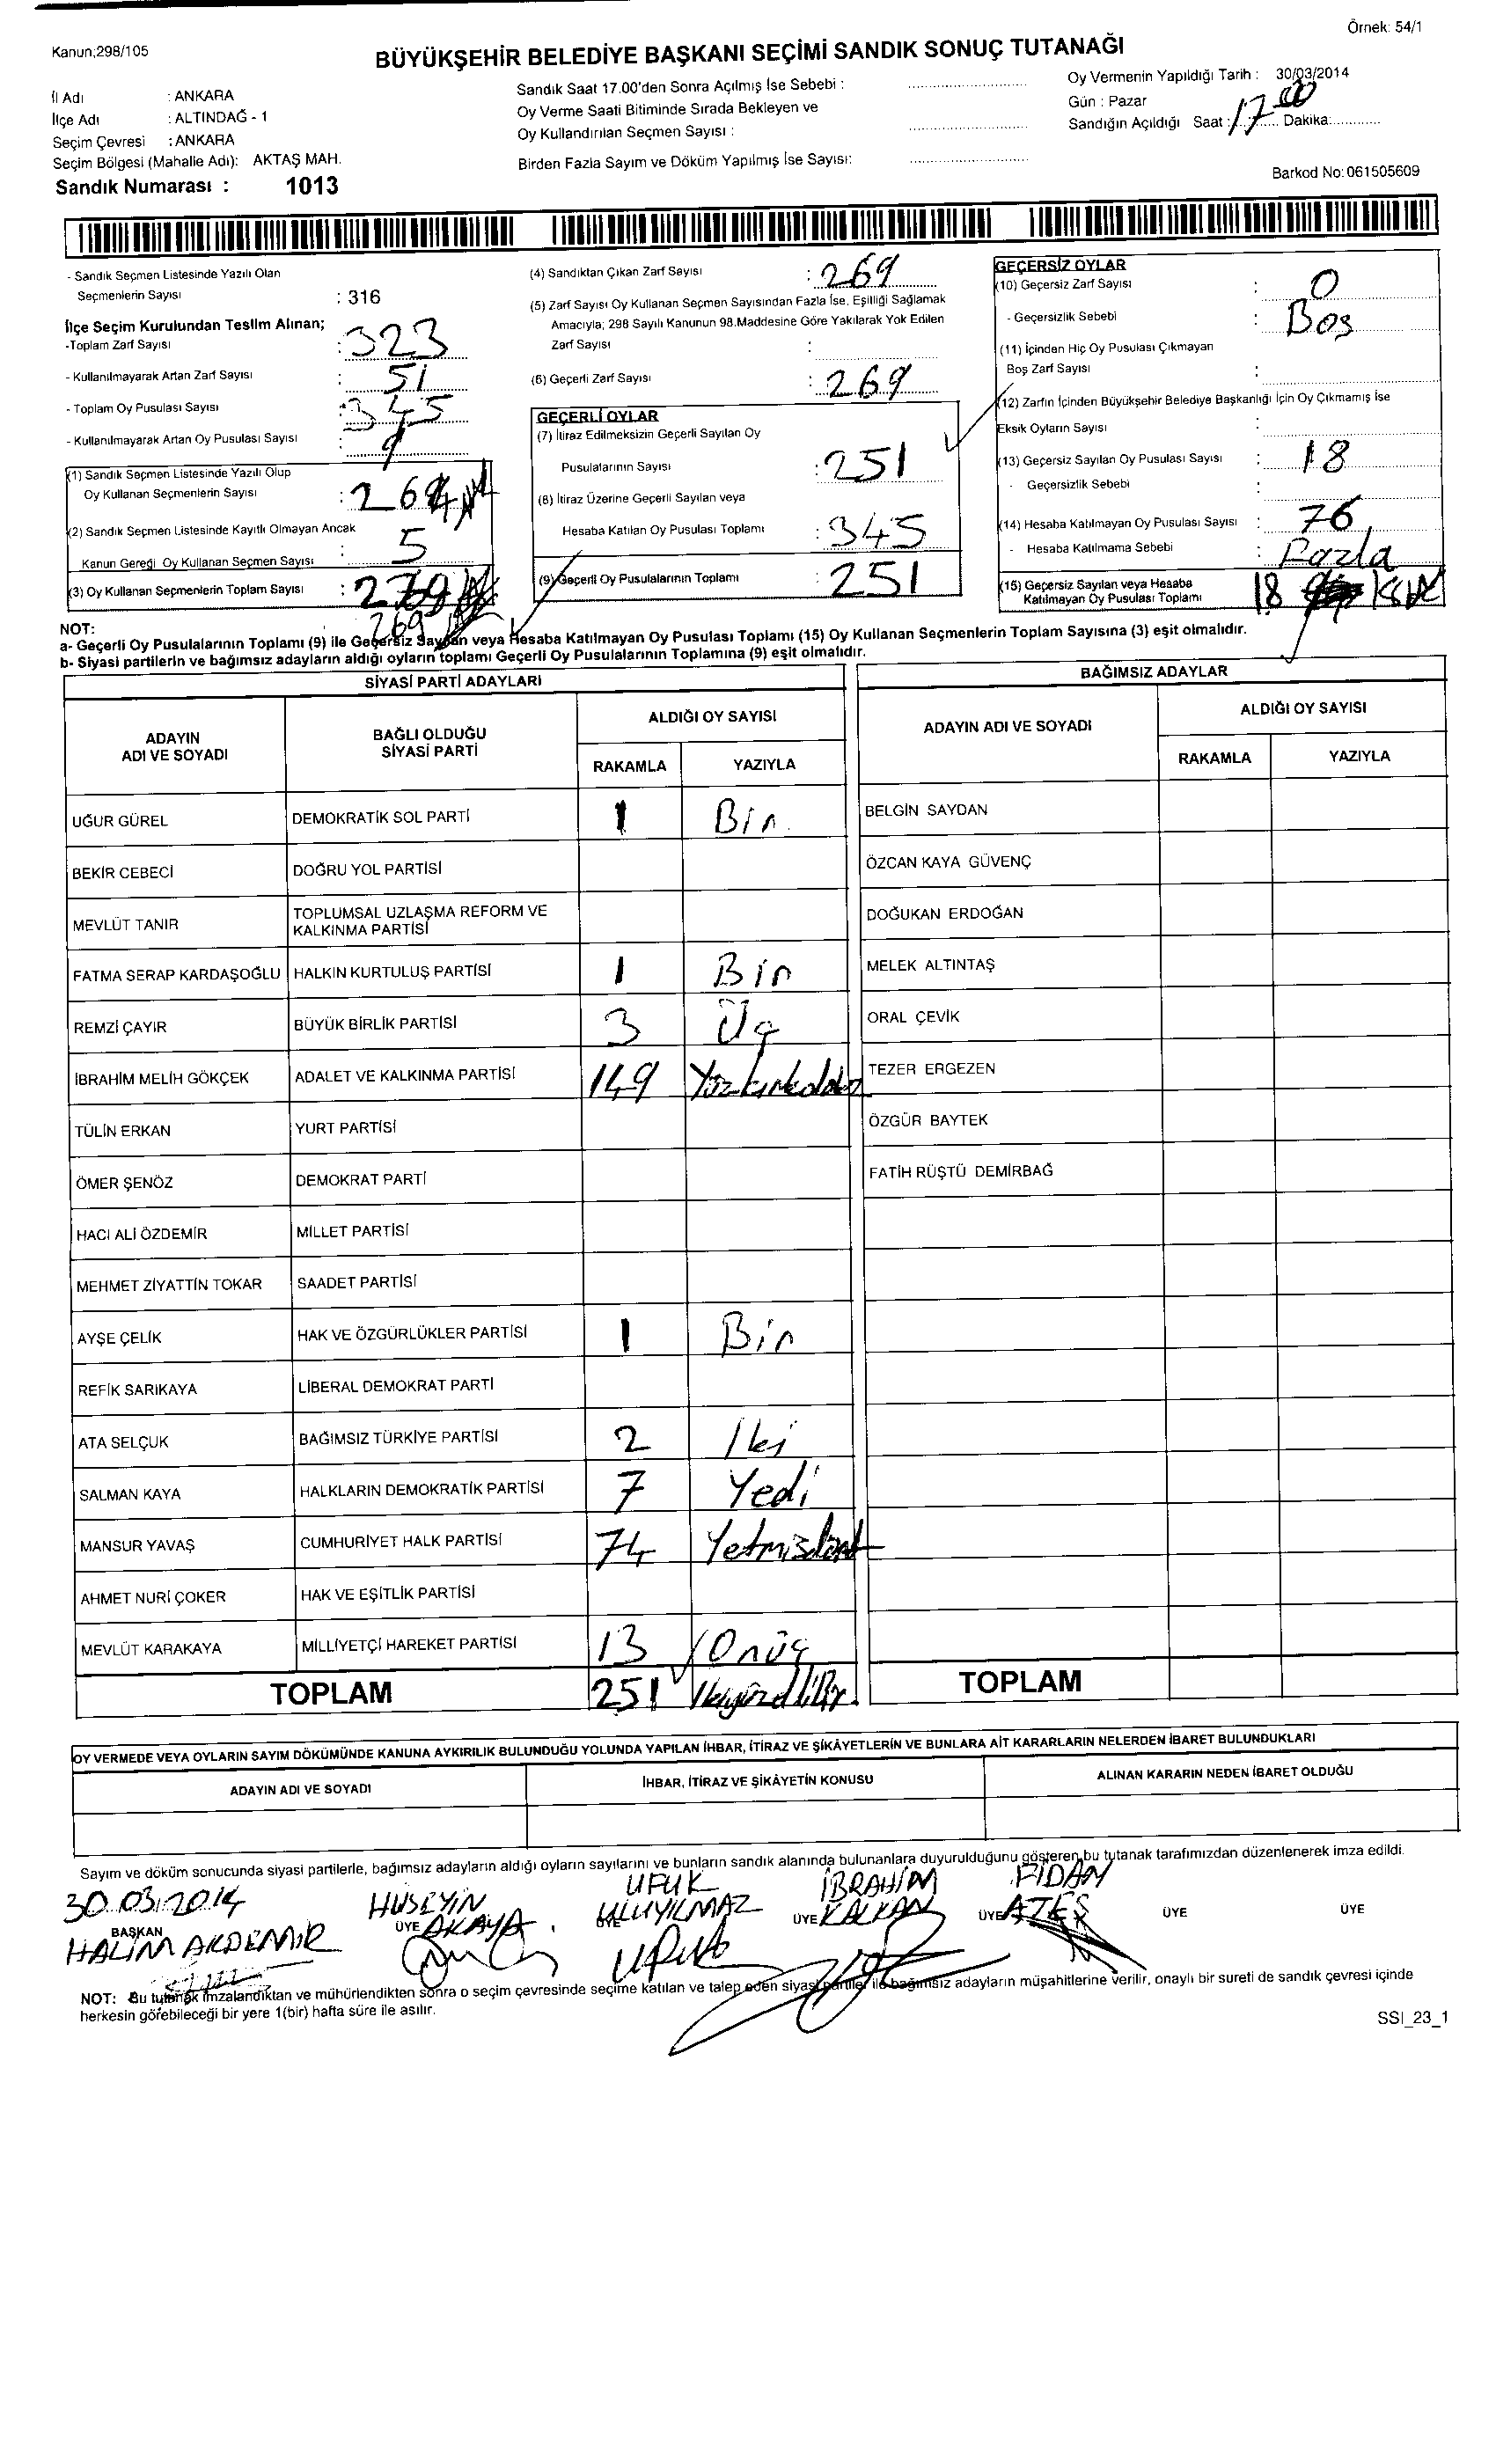 Örnek: 54/1
Kanun;298/105
BÜYÜKŞEHİR BELEDİYE BAŞKANI SEÇİMİ SANDIK SONUÇ TUTANAĞI
İl Adı : ANKARA
İlçe Adı : ALTINDAĞ - 1
Seçim Çevresi : ANKARA
Seçim Bölgesi (Mahalle Adı): AKTAŞ MAH.
Sandık Numarası : 1013
Sandık Saat 17.00'den Sonra Açılmış İse Sebebi :
Oy Verme Saati Bitiminde Sırada Bekleyen ve
Oy Kullandırılan Seçmen Sayısı :
Birden Fazla Sayım ve Döküm Yapılmış İse Sayısı:
Oy Vermenin Yapıldığı Tarih : 30/03/2014
Gün : Pazar
Sandığın Açıldığı Saat : 17 Dakika: 00
Barkod No: 061505609
- Sandık Seçmen Listesinde Yazılı Olan
Seçmenlerin Sayısı : 316
İlçe Seçim Kurulundan Teslim Alınan;
-Toplam Zarf Sayısı : 323
- Kullanılmayarak Artan Zarf Sayısı : 51
- Toplam Oy Pusulası Sayısı : 345
- Kullanılmayarak Artan Oy Pusulası Sayısı :
(1) Sandık Seçmen Listesinde Yazılı Olup
Oy Kullanan Seçmenlerin Sayısı : 264
(2) Sandık Seçmen Listesinde Kayıtlı Olmayan Ancak
Kanun Gereği Oy Kullanan Seçmen Sayısı : 5
(3) Oy Kullanan Seçmenlerin Toplam Sayısı :
269
(4) Sandıktan Çıkan Zarf Sayısı : 269
(5) Zarf Sayısı Oy Kullanan Seçmen Sayısından Fazla İse, Eşitliği Sağlamak
Amacıyla; 298 Sayılı Kanunun 98.Maddesine Göre Yakılarak Yok Edilen
Zarf Sayısı :
(6) Geçerli Zarf Sayısı : 269
GEÇERLİ OYLAR
(7) İtiraz Edilmeksizin Geçerli Sayılan Oy
Pusulalarının Sayısı : 251
(8) İtiraz Üzerine Geçerli Sayılan veya
Hesaba Katılan Oy Pusulası Toplamı : 345
(9) Geçerli Oy Pusulalarının Toplamı : 251
GEÇERSİZ OYLAR
(10) Geçersiz Zarf Sayısı : 0
- Geçersizlik Sebebi : Boş
(11) İçinden Hiç Oy Pusulası Çıkmayan
Boş Zarf Sayısı :
(12) Zarfın İçinden Büyükşehir Belediye Başkanlığı İçin Oy Çıkmamış İse
Eksik Oyların Sayısı :
(13) Geçersiz Sayılan Oy Pusulası Sayısı : 18
- Geçersizlik Sebebi :
(14) Hesaba Katılmayan Oy Pusulası Sayısı : 76
- Hesaba Katılmama Sebebi : Fazla
(15) Geçersiz Sayılan veya Hesaba
Katılmayan Oy Pusulası Toplamı 18
NOT:
a- Geçerli Oy Pusulalarının Toplamı (9) ile Geçersiz Sayılan veya Hesaba Katılmayan Oy Pusulası Toplamı (15) Oy Kullanan Seçmenlerin Toplam Sayısına (3) eşit olmalıdır.
b- Siyasi partilerin ve bağımsız adayların aldığı oyların toplamı Geçerli Oy Pusulalarının Toplamına (9) eşit olmalıdır.
SİYASİ PARTİ ADAYLARI
ADAYIN ADI VE SOYADI BAĞLI OLDUĞU SİYASİ PARTİ ALDIĞI OY SAYISI
RAKAMLA YAZIYLA
UĞUR GÜREL DEMOKRATİK SOL PARTİ 1 Bir
BEKİR CEBECİ DOĞRU YOL PARTİSİ
MEVLÜT TANIR TOPLUMSAL UZLAŞMA REFORM VE KALKINMA PARTİSİ
FATMA SERAP KARDAŞOĞLU HALKIN KURTULUŞ PARTİSİ 1 Bir
REMZİ ÇAYIR BÜYÜK BİRLİK PARTİSİ 3 Üç
İBRAHİM MELİH GÖKÇEK ADALET VE KALKINMA PARTİSİ 149 Yüzkırkdokuz
TÜLİN ERKAN YURT PARTİSİ
ÖMER ŞENÖZ DEMOKRAT PARTİ
HACI ALİ ÖZDEMİR MİLLET PARTİSİ
MEHMET ZİYATTİN TOKAR SAADET PARTİSİ
AYŞE ÇELİK HAK VE ÖZGÜRLÜKLER PARTİSİ 1 Bir
REFİK SARIKAYA LİBERAL DEMOKRAT PARTİ
ATA SELÇUK BAĞIMSIZ TÜRKİYE PARTİSİ 2 İki
SALMAN KAYA HALKLARIN DEMOKRATİK PARTİSİ 7 Yedi
MANSUR YAVAŞ CUMHURİYET HALK PARTİSİ 74 Yetmişdört
AHMET NURİ ÇOKER HAK VE EŞİTLİK PARTİSİ
MEVLÜT KARAKAYA MİLLİYETÇİ HAREKET PARTİSİ 13 Onüç
TOPLAM 251 İkiyüzellibir
BAĞIMSIZ ADAYLAR
ADAYIN ADI VE SOYADI ALDIĞI OY SAYISI
RAKAMLA YAZIYLA
BELGİN SAYDAN
ÖZCAN KAYA GÜVENÇ
DOĞUKAN ERDOĞAN
MELEK ALTINTAŞ
ORAL ÇEVİK
TEZER ERGEZEN
ÖZGÜR BAYTEK
FATİH RÜŞTÜ DEMİRBAĞ
TOPLAM
OY VERMEDE VEYA OYLARIN SAYIM DÖKÜMÜNDE KANUNA AYKIRILIK BULUNDUĞU YOLUNDA YAPILAN İHBAR, İTİRAZ VE ŞİKÂYETLERİN VE BUNLARA AİT KARARLARIN NELERDEN İBARET BULUNDUKLARI
ADAYIN ADI VE SOYADI İHBAR, İTİRAZ VE ŞİKÂYETİN KONUSU ALINAN KARARIN NEDEN İBARET OLDUĞU
Sayım ve döküm sonucunda siyasi partilerle, bağımsız adayların aldığı oyların sayılarını ve bunların sandık alanında bulunanlara duyurulduğunu gösteren bu tutanak tarafımızdan düzenlenerek imza edildi.
30.03.2014 HÜSEYİN UFUK İBRAHİM FİDAN
BAŞKAN ÜYE AKAYA ÜYE ULUYILMAZ ÜYE KALKAN ÜYE ATEŞ ÜYE ÜYE
HALİM AKDEMİR
NOT: Bu tutanak imzalandıktan ve mühürlendikten sonra o seçim çevresinde seçime katılan ve talep eden siyasi partiler ile bağımsız adayların müşahitlerine verilir, onaylı bir sureti de sandık çevresi içinde
herkesin görebileceği bir yere 1(bir) hafta süre ile asılır.
SSI_23_1